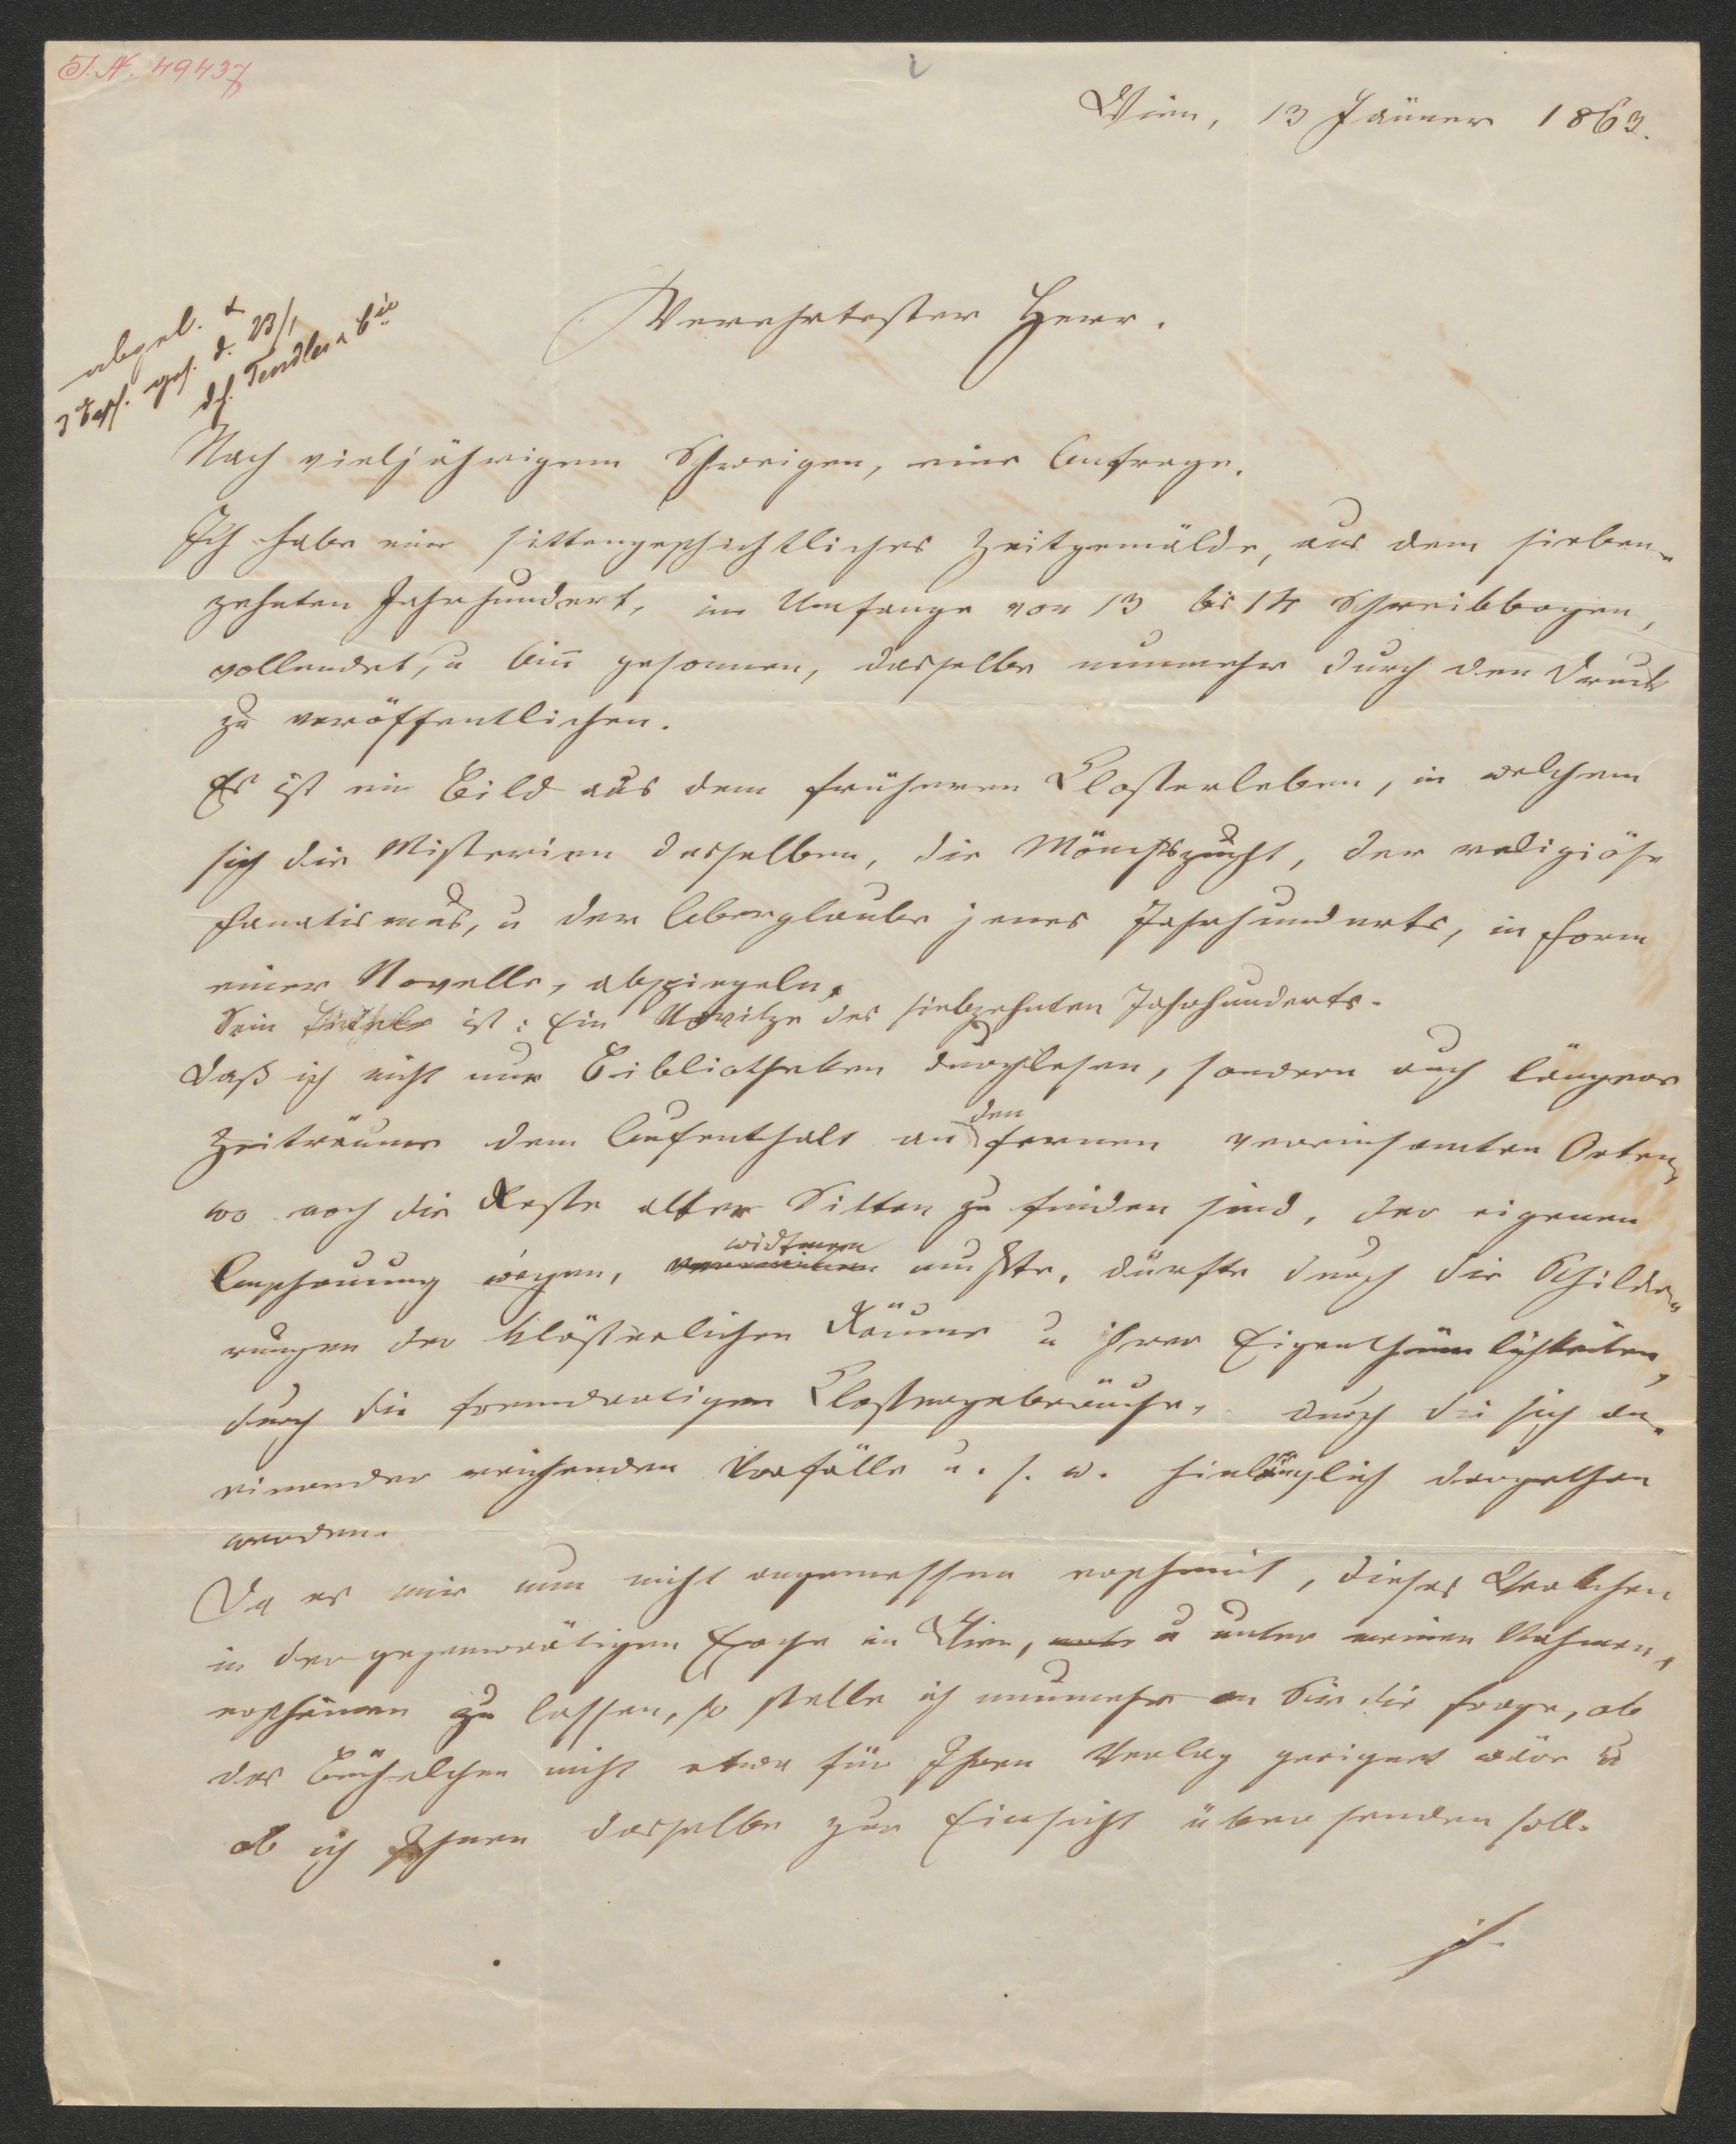 I.N. 49437
Wien, 13 Jänner 1863.
abgel. &
3 Expl. gesch. d. 23/1
d. Tendler & Cie
Verehrtester Herr.
Nach vieljährigem Schweigen, eine Anfrage.
Ich habe ein sittengeschichtliches Zeitgemälde, aus dem sieben-
zehnten Jahrhundert, im Umfange von 13 bis 14 Schreibbogen,
vollendet, u bin gesonnen, dasselbe nunmehr durch den Druck
zu veröffentlichen.
Es ist ein Bild aus dem früheren Klosterleben, in welchem
sich die Misterien desselben, die Mönchszucht, der religiöse
Fanatismus, u der Aberglaube jenes Jahrhunderts, in Form
einer Novelle, abspiegeln.
Sein Titel ist: Ein Novitze des siebzehnten Jahrhunderts.
Daß ich nicht nur Bibliotheken durchlesen, sondern auch längere
Zeiträume dem Aufenthalt an den fernen vereinsamten Orten,
wo noch die Reste alter Sitten zu finden sind, der eigenen
Anschauung wegen, widmen mußte, dürfte durch die Schilde-
rungen der klösterlichen Räume u ihrer Eigenthümlichkeiten,
durch die fremdartigen Klostergebräuche, durch die sich an-
einander reihenden Vorfälle u. s. w. hinlänglich dargethan
werden.
Da es mir nun nicht angemessen erscheint, dieses Werkchen
in der gegenwärtigen Epoche in Wien, u unter meinen Nahmen,
erscheinen zu lassen, so stelle ich nunmehr an Sie die Frage, ob
das Büchelchen nicht etwa für Ihren Verlag geeignet wäre u
ob ich Ihnen dasselbe zur Einsicht übersenden soll.